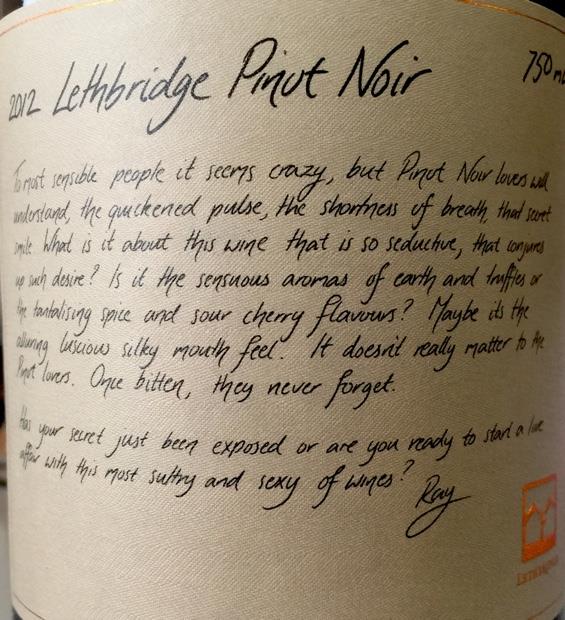 2012 Lethbridge Pinot Noir 750ml
To most sensible people it seems crazy, but Pinot Noir lovers will
understand, the quickened pulse, the shortness of breath, that secret
smile. What is it about this wine that is so seductive, that conjures
up such desire? Is it the sensuous aromas of earth and truffles or
the tantalising spice and sour cherry flavours? Maybe its the
alluring luscious silky mouth feel. It doesn't really matter to the
Pinot lovers. Once bitten, they never forget.
Has your secret just been exposed or are you ready to start a love
affair with this most sultry and sexy of wines?
Ray
LETHBRIDGE